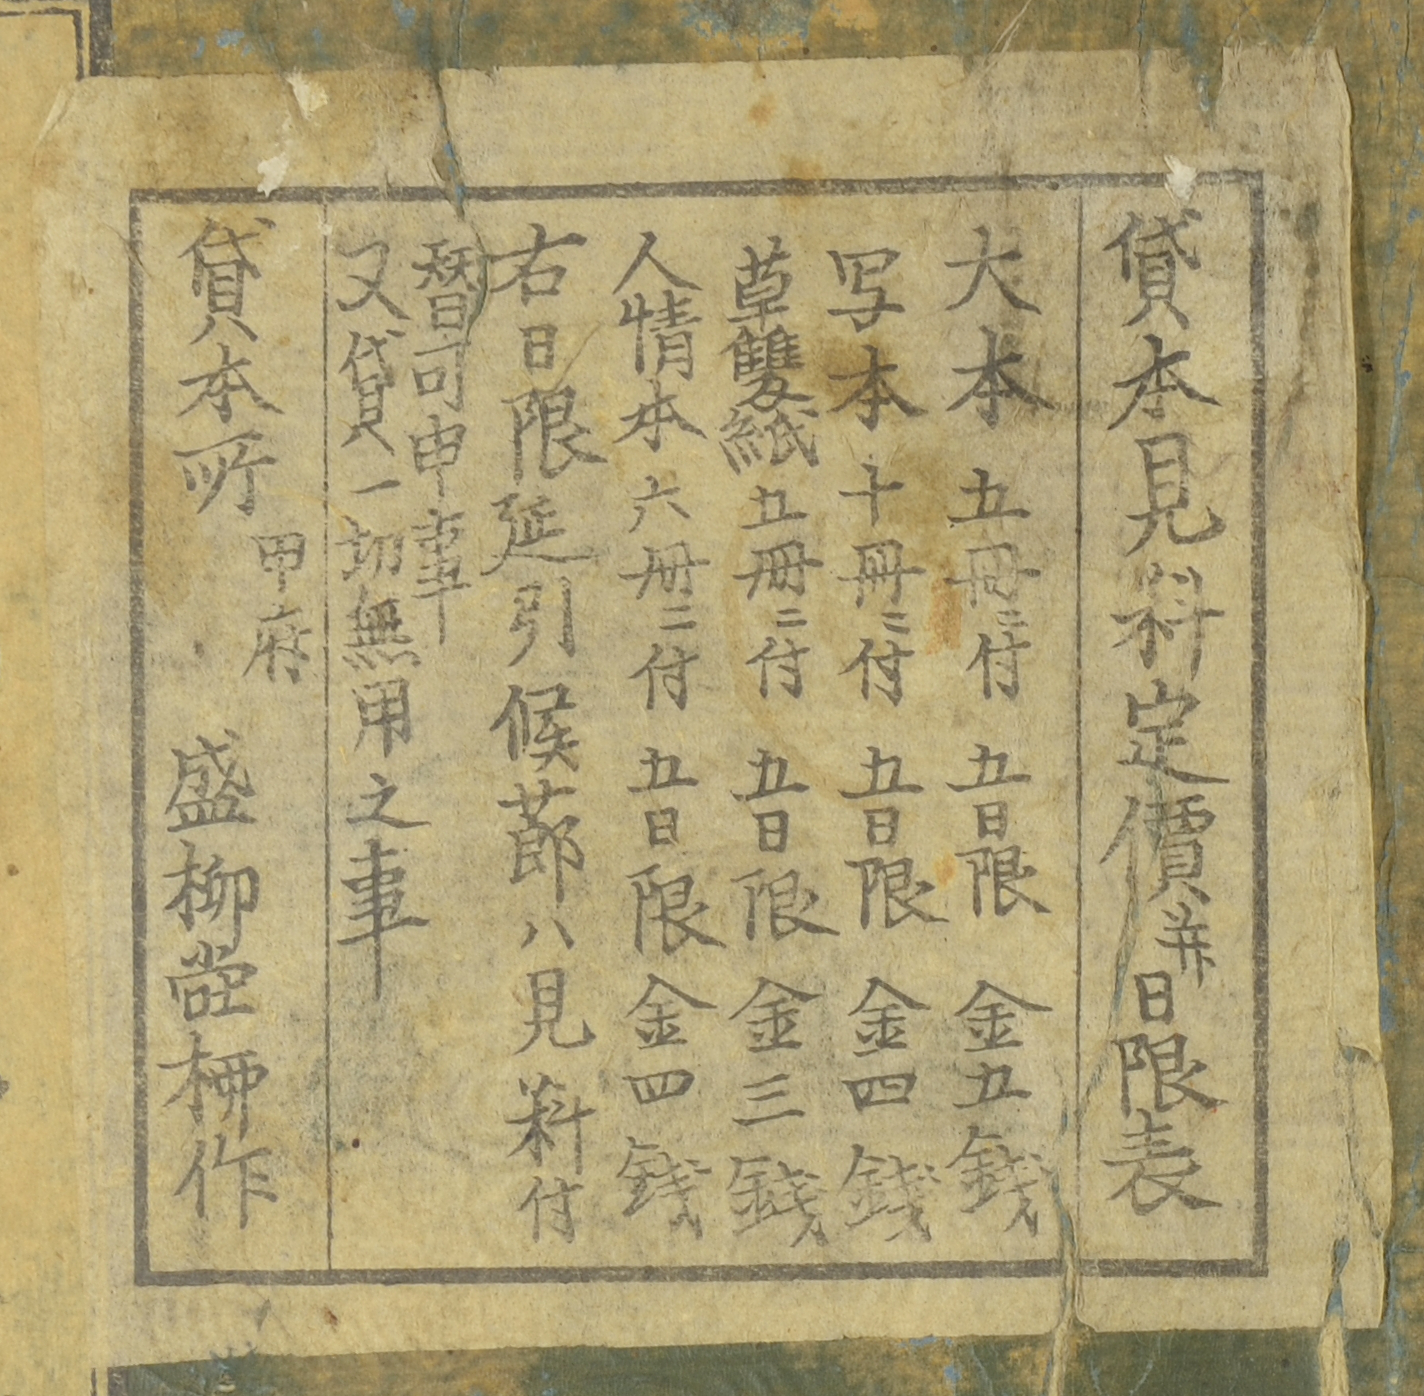 貸本見料定價并日限表
大本五冊ニ付五日限金五錢
写本十冊ニ付五日限金四錢
草雙紙五冊ニ付五日限金三錢
人情本六冊ニ付五日限金四錢
右日限延引候節ハ見料付
替可申事
又貸一切無用之事
貸本所
甲府
盛柳堂柳作